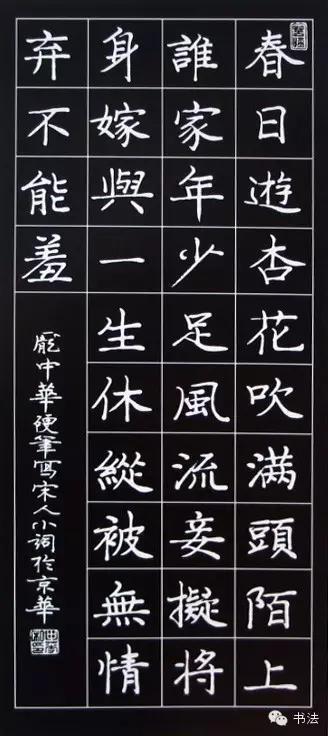 春日遊杏花吹满頭陌上
誰家年少足風流妾擬將
身嫁與一生休縱被無情
弃不能羞
龐中華硬筆寫宋人小詞於京華
书法